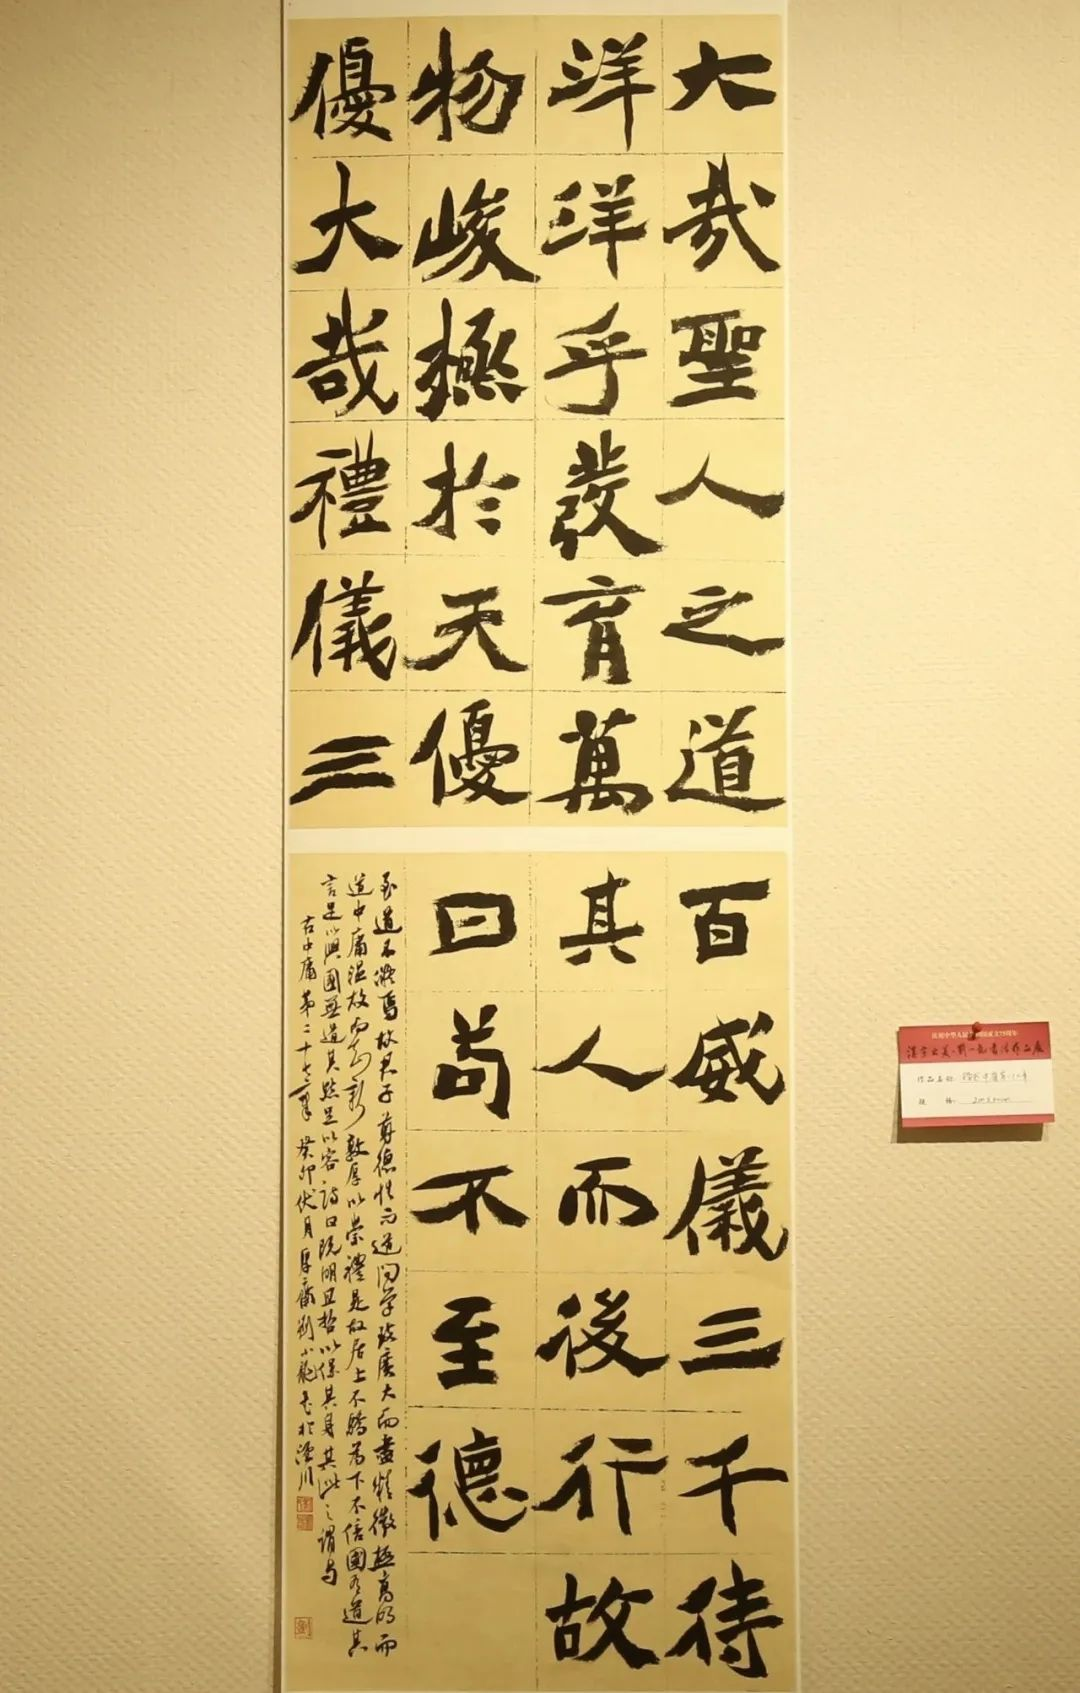 大哉聖人之道
洋洋乎發育萬
物峻極於天優
優大哉禮儀三
百威儀三千待
其人而後行故
曰苟不至德
至道不凝焉故君子尊德性而道问学致廣大而盡精微極高明而
道中庸温故而知新敦厚以崇禮是故居上不驕為下不倍國有道其
言足以興國無道其默足以容詩曰既明且哲以保其身其此之謂與
右中庸第二十七章 癸卯伏月厚齋劉小龍書於涇川
劉
庆祝中华人民共和国成立75周年
作品名称
規 格